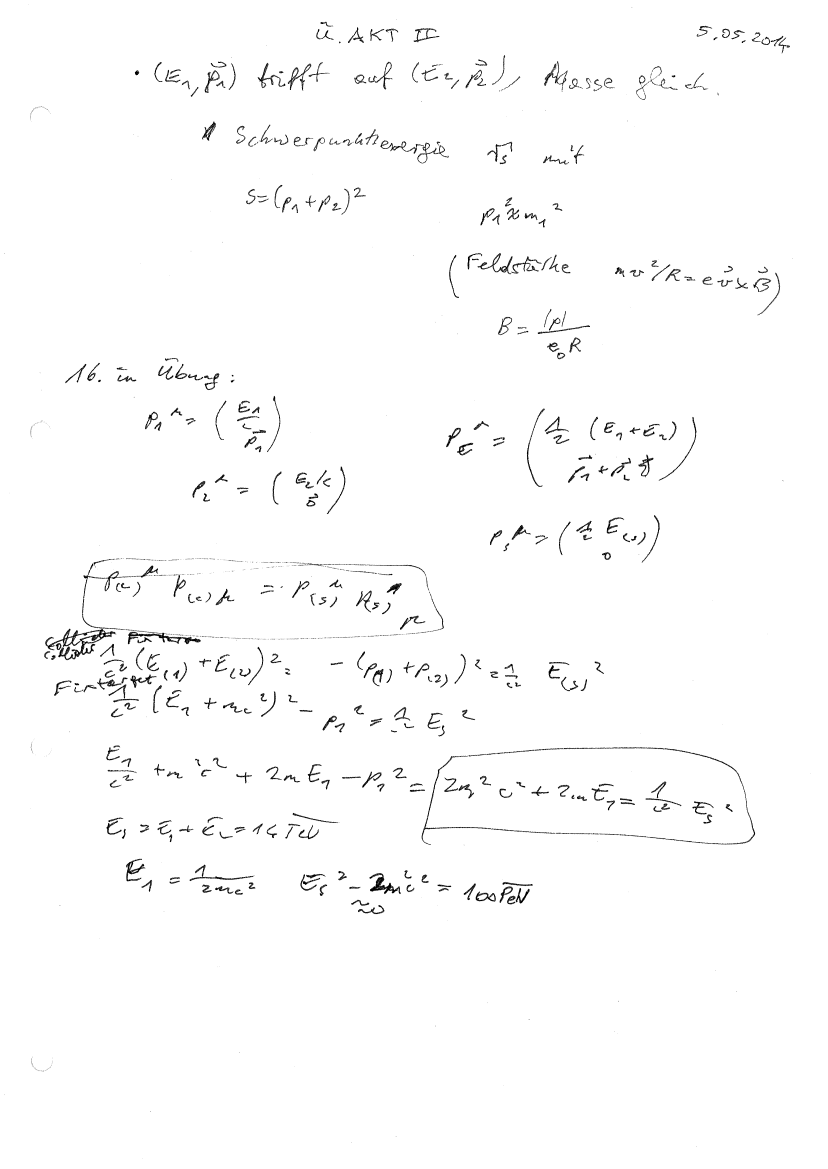 Ü. AKT II
5.05.2014
• (E₁, p⃗₁) trifft auf (E₂, p⃗₂), Masse gleich.
Schwerpunktsenergie √s mit
S=(p₁+p₂)²
p₁² ≈ m₁²
(Feldstärke mv²/R = e v⃗ × B⃗)
B = |p| / e₀R
16. in Übung:
p₁^μ = (E₁/c, p⃗₁)
p₂^μ = (E₂/c, 0⃗)
p_E^μ = (1/c (E₁+E₂), p⃗₁+p⃗₂)
p_s^μ = (1/c E(s), 0)
p(c)^μ p(c)μ = p(s)^μ p(s)μ
Collider
1/c² (E(1) + E(2))² = - (p(1) + p(2))² = 1/c² E(s)²
Fixtarget
1/c² (E₁ + mc²)² - p₁² = 1/c² E_s²
E₁/c² + m²c² + 2mE₁ - p₁² = 2m²c² + 2mE₁ = 1/c² E_s²
E_s = E₁ + E₂ = 14 TeV
E₁ = 1/2mc² E_s² - 2m²c² = 100 PeV
≈0